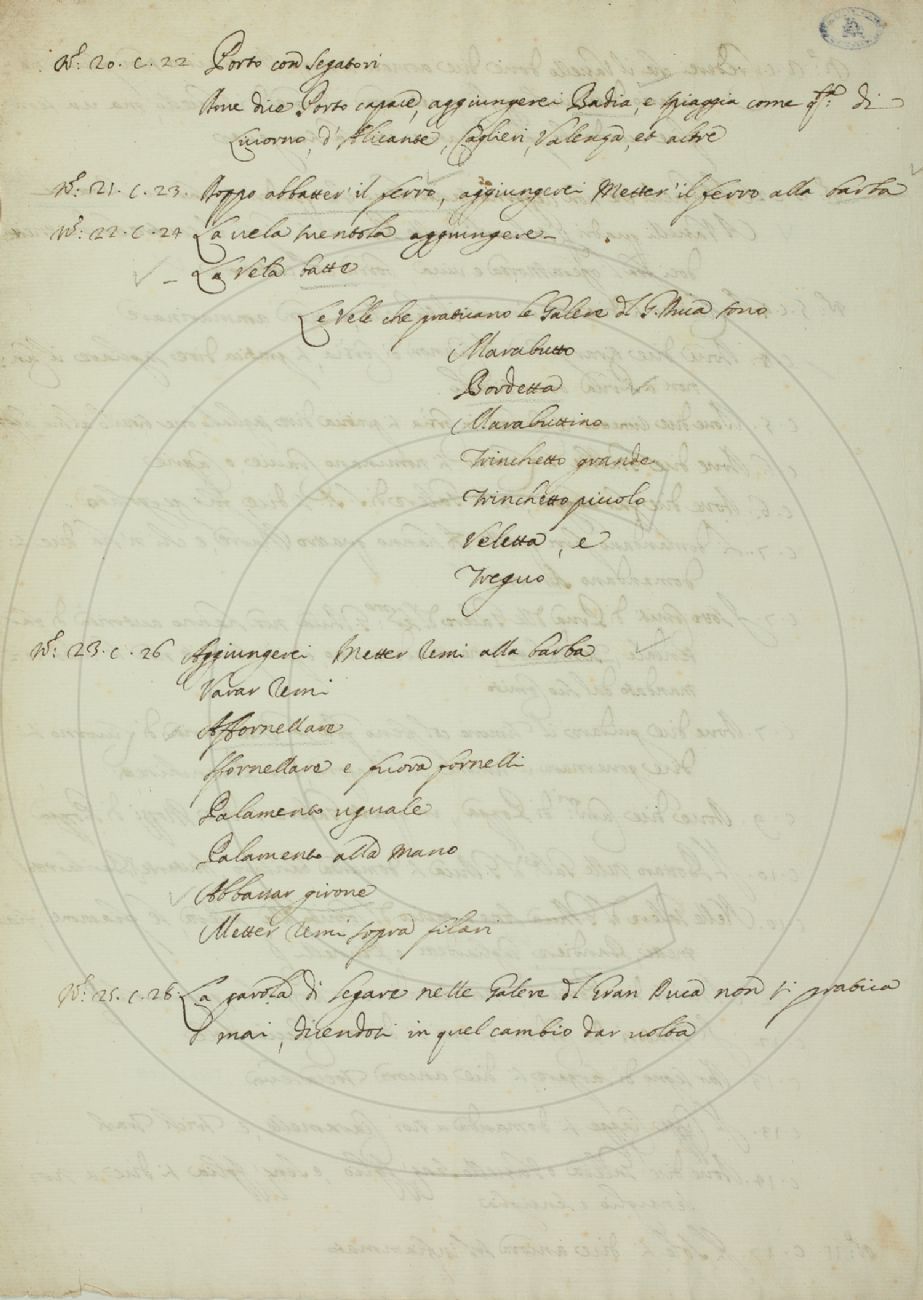 N.º 20. C. 22 Porto con Segatori
Dove dice Porto capace, aggiungerci Badia, e spiaggia come q.ta di
Livorno, d'Alicante, Caglieri, Valenza, et altre
N.º 21. C. 23. Doppo abbatter il ferro, aggiungerci Metter il ferro alla barba
N.º 22. C. 24 La vela sventola aggiungere –
– La Vela batte
Le Vele che praticano le Galere del G. Duca sono
Marabutto
Bordetta
Marabuttino
Trinchetto grande
Trinchetto piccolo
Veletta, e
Treguo
N.º 23. C. 26 Aggiungerci Metter remi alla barba
Varar remi
Affornellare
Sfornellare e fuora fornelli
Palamento uguale
Palamento alla mano
Abbattar girone
Metter remi sopra filari
N.º 25. C. 28. La parola di segare nelle Galere del Gran Duca non si pratica
mai, dicendosi in quel cambio dar volta